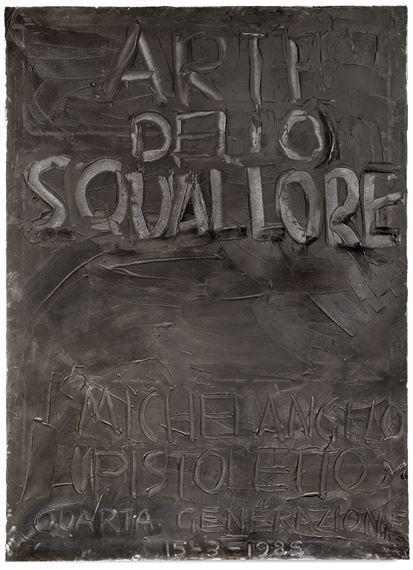 ARTE
DELLO
SQUALLORE
MICHELANGELO
PISTOLETTO
QUARTA GENERAZIONE
15-3-1985